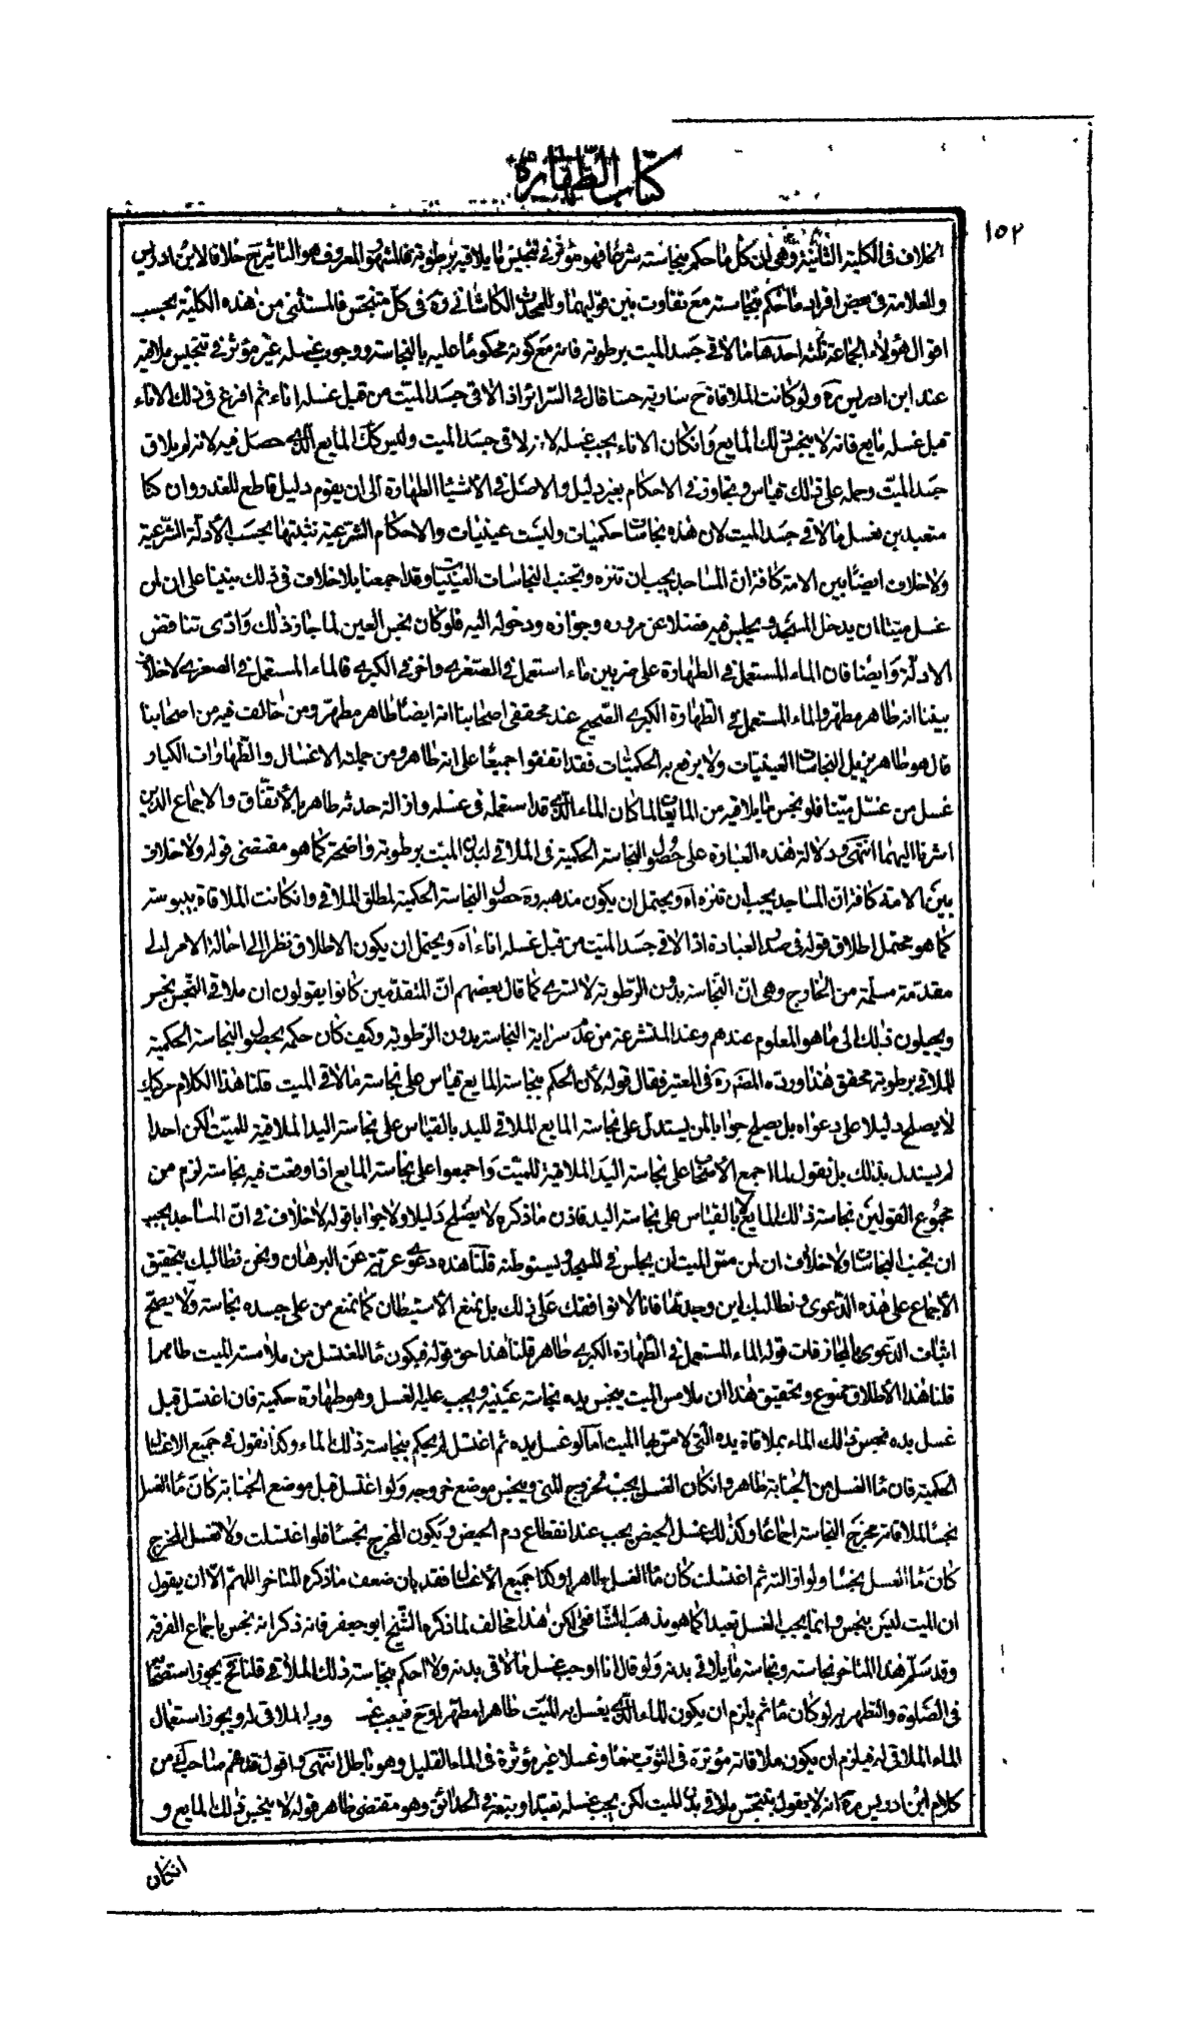 كتاب الطهارة
١٥٢
الخلاف في الكلية الثانية وهي ان كل ما حكم بنجاسته شرعا فهو مؤثر في تنجيس ما يلاقيه برطوبة فالمشهور المعروف هو التاثير ح خلافا لابن ادريس
والعلامة في بعض افراد ما حكم بنجاسته مع تفاوت بين قوليهما وللمحدث الكاشاني ره في كل متنجس فالمستثنى من هذه الكلية بحسب
اقوال هؤلاء الجماعة ثلثة احدها ما لاقى جسد الميت برطوبة فانه مع كونه محكوما عليه بالنجاسة ووجوب غسله غير مؤثر في تنجيس ملاقيه
عند ابن ادريس ره ولو كانت الملاقاة ح سارية حسا قال في السرائر اذا لاقى جسد الميت من قبل غسله اناء ثم افرغ في ذلك الاناء
قبل غسله مايع فانه لا ينجس ذلك المايع وانكان الاناء يجب غسله لانه لاقى جسد الميت وليس كك المايع الذي حصل فيه لانه لم يلاق
جسد الميت وحمله على ذلك قياس وتجاوز في الاحكام بغير دليل والاصل في الاشياء الطهارة الى ان يقوم دليل قاطع للعذر وان كنا
متعبدين بغسل ما لاقى جسد الميت لان هذه نجاسات حكميات وليست عينيات والاحكام الشرعية نثبتها بحسب الأدلة الشرعية
ولا خلاف ايضا بين الامة كافة ان المساجد يجب ان تنزه وتجنب النجاسات العينيات وقد اجمعنا بلا خلاف في ذلك بيننا على ان لمن
غسل ميتا ان يدخل المسجد ويجلس فيه فضلا عن مروره وجوازه ودخوله اليه فلو كان نجس العين لما جاز ذلك وادى تناقض
الادلة وايضا فان الماء المستعمل في الطهارة على ضربين ماء استعمل في الصغرى واخر في الكبرى فالماء المستعمل في الصغرى لا خلاف
بيننا انه طاهر مطهر والماء المستعمل في الطهارة الكبرى الصحيح عند محققي اصحابنا انه ايضا طاهر مطهر ومن خالف فيه من اصحابنا
قال هو طاهر يزيل النجاسات العينيات ولا يرفع به الحكميات فقد اتفقوا جميعا على انه طاهر ومن جملة الاغسال والطهارات الكبار
غسل من غسل ميتا فلو نجس ما يلاقيه من المايعات لما كان الماء الذي قد استعمله في غسله وازالة حدثه طاهر بالأتفاق والاجماع الذين
اشرنا اليهما انتهى ودلالة هذه العبارة على حصول النجاسة الحكمية في الملاقي لبدن الميت برطوبة واضحة كما هو مقتضى قوله ولا خلاف
بين الامة كافة ان المساجد يجب ان تنزه اه ويحتمل ان يكون مذهبه ره حصول النجاسة الحكمية لمطلق الملاقي وانكانت الملاقاة بيبوسة
كما هو محتمل اطلاق قوله في صدر العبارة اذا لاقى جسد الميت من قبل غسله اناء اه ويحتمل ان يكون الاطلاق نظرا الى احالة الامر الى
مقدمة مسلمة من الخارج وهي ان النجاسة بدون الرطوبة لا تسري كما قال بعضهم ان المتقدمين كانوا يقولون ان ملاقي النجس نجس
ويحيلون ذلك الى ما هو المعلوم عندهم وعند المتشرعة من عدم سراية النجاسة بدون الرطوبة وكيف كان حكمه بحصول النجاسة الحكمية
للملاقي برطوبة محقق هذا ورده المصنف ره في المعتبر فقال قوله لأن الحكم بنجاسة المايع قياس على نجاسة ما لاقى الميت قلنا هذا الكلام ركيك
لا يصلح دليلا على دعواه بل يصلح جوابا لمن يستدل على نجاسة المايع الملاقي لليد بالقياس على نجاسة اليد الملاقية للميت لكن احدا
لم يستدل بذلك بل نقول لما اجمع الأصحاب على نجاسة اليد الملاقية للميت واجمعوا على نجاسة المايع اذا وقعت فيه نجاسة لزم من
مجموع القولين نجاسة ذلك المايع لا بالقياس على نجاسة اليد فاذن ما ذكره لا يصلح دليلا ولا جوابا قوله لا خلاف في ان المساجد يجب
ان يجنب النجاسات ولا خلاف ان لمن مس الميت ان يجلس في المسجد ويستوطنه قلنا هذه دعوى عرية عن البرهان ونحن نطالبك بتحقيق
الاجماع على هذه الدعوى ونطالبك اين وجدتها فانا لا نوافقك على ذلك بل نمنع الأستيطان كما نمنع من على جسده نجاسة ولا يصح
اثبات الدعوى بالمجازفات قوله الماء المستعمل في الطهارة الكبرى طاهر قلنا هذا حق قوله فيكون ماء المغتسل من ملامسة الميت طاهرا
قلنا هذا الأطلاق ممنوع وتحقيق هذا ان ملامس الميت ينجس يده نجاسة عينية ويجب عليه الغسل وهو طهارة حكمية فان اغتسل قبل
غسل يده نجس ذلك الماء بملاقاة يده التي لامس بها الميت اما لو غسل يده ثم اغتسل لم يحكم بنجاسة ذلك الماء وكذا نقول في جميع الاغسال
الحكمية فان ماء الغسل من الجنابة طاهر وانكان الغسل يجب بخروج المني وينجس موضع خروجه ولو اغتسل قبل موضع الجنابة كان ماء الغسل
نجسا لملاقاته مخرج النجاسة اجماعا وكذلك غسل الحيض يجب عند انقطاع دم الحيض ويكون المخرج نجسا فلو اغتسلت ولم تغسل المخرج
كان ماء الغسل نجسا ولو ازالته ثم اغتسلت كان ماء الغسل طاهرا وكذا جميع الأغسال فقد بان ضعف ما ذكره المتاخر اللهم الا ان يقول
ان الميت ليس بنجس وانما يجب الغسل تعبدا كما هو مذهب الشافعي لكن هذا مخالف لما ذكره الشيخ ابو جعفر فانه ذكر انه نجس باجماع الفرقة
وقد سلم هذا المتاخر نجاسته ونجاسة ما يلاقي بدنه ولو قال انا اوجب غسل ما لاقى بدنه ولا احكم بنجاسة ذلك الملاقي قلنا فح يجوز استصحابه
في الصلوة والتطهر به لو كان ماء ثم يلزم ان يكون الماء الذي يغسل به الميت طاهرا مطهرا وح فيجب غـ ويد الملاقي له ويجوز استعمال
الماء الملاقي له فيلزم ان يكون ملاقاته مؤثرة في الثوب منعا وغسلا غير مؤثرة في الماء القليل وهو باطل انتهى واقول قد فهم صاحب ئق من
كلام ابن ادريس ره انه لا يقول بتنجس ملاقي بدن الميت لكن يجب غسله تعبدا وتبعه في الحدائق وهو مقتضى ظاهر قوله لا ينجس ذلك المايع و
انكان